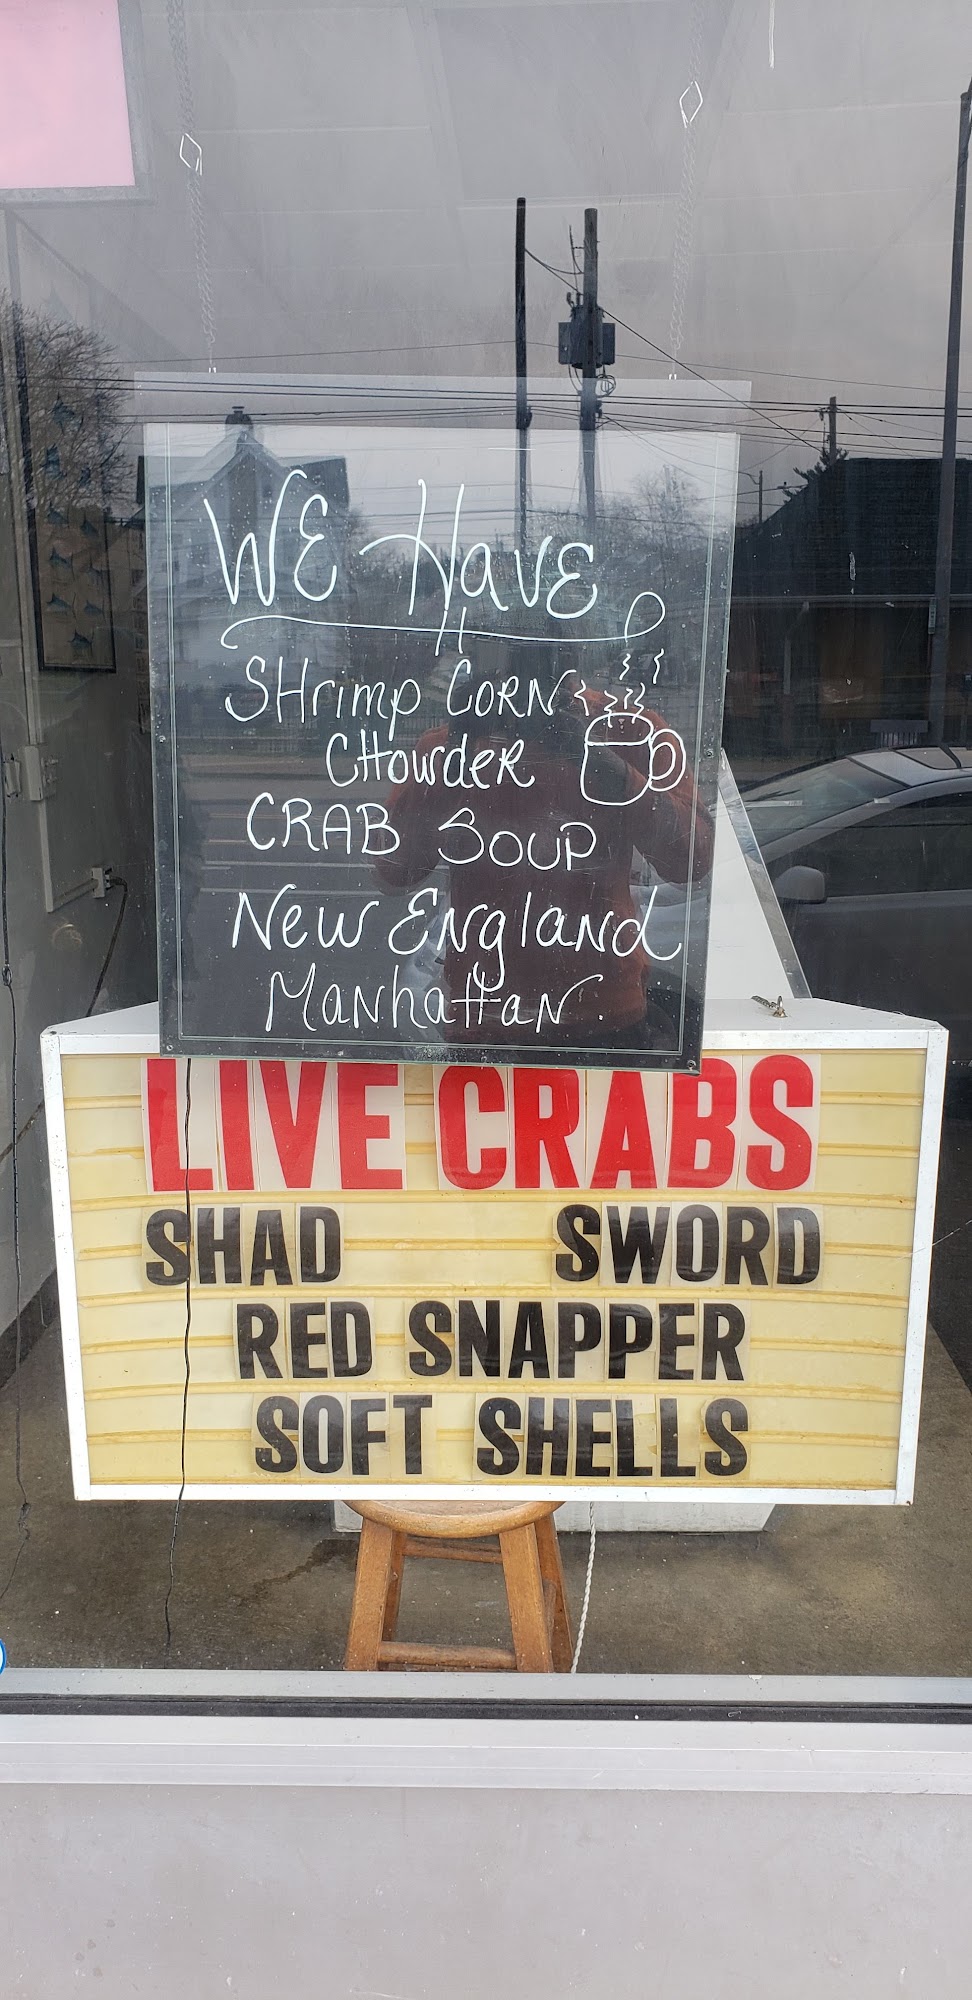 WE HavE
SHrimp CORN
CHowdER
CRAB SOUP
NEW ENglaNd
MaNhattaN.
LIVE CRABS
SHAD SWORD
RED SNAPPER
SOFT SHELLS